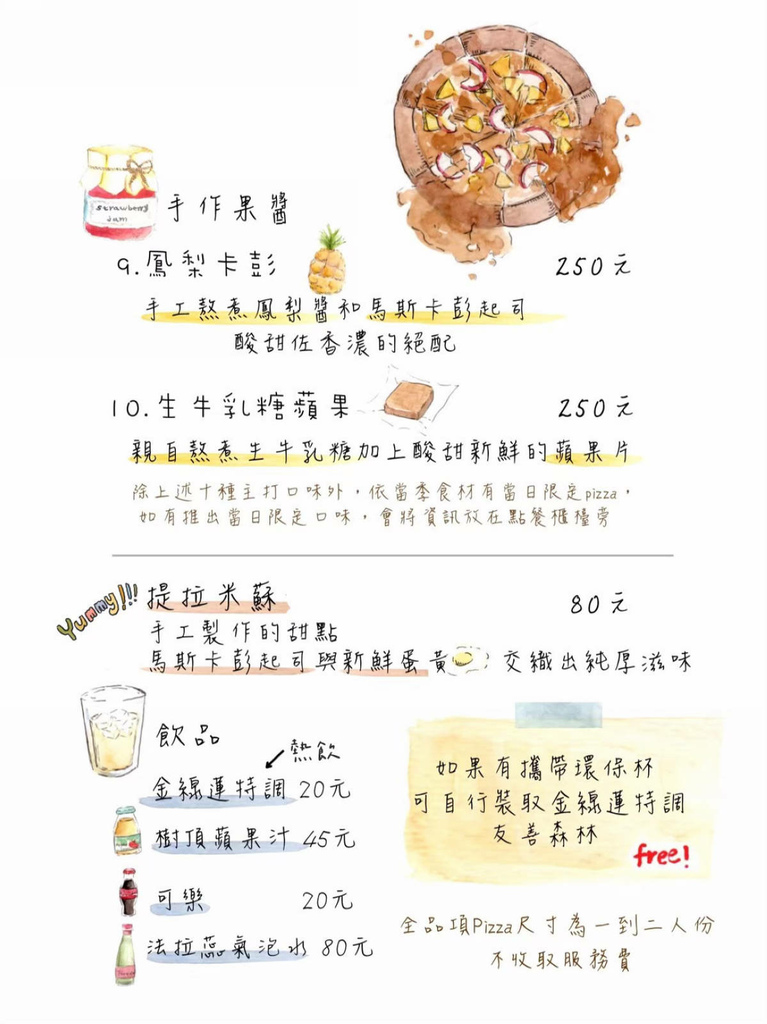 strawberry
jam
手作果醬
9.鳳梨卡彭 250元
手工熬煮鳳梨醬和馬斯卡彭起司
酸甜佐香濃的絕配
10.生牛乳糖蘋果 250元
親自熬煮生牛乳糖加上酸甜新鮮的蘋果片
除上述十種主打口味外，依當季食材有當日限定pizza，
如有推出當日限定口味，會將資訊放在點餐櫃檯旁
Yummy!!!
提拉米蘇 80元
手工製作的甜點
馬斯卡彭起司與新鮮蛋黃 交織出純厚滋味
飲品
熱飲
金線蓮特調 20元
樹頂蘋果汁 45元
可樂 20元
法拉蕊氣泡水 80元
如果有攜帶環保杯
可自行裝取金線蓮特調
友善森林
free!
全品項Pizza尺寸為一到二人份
不收取服務費